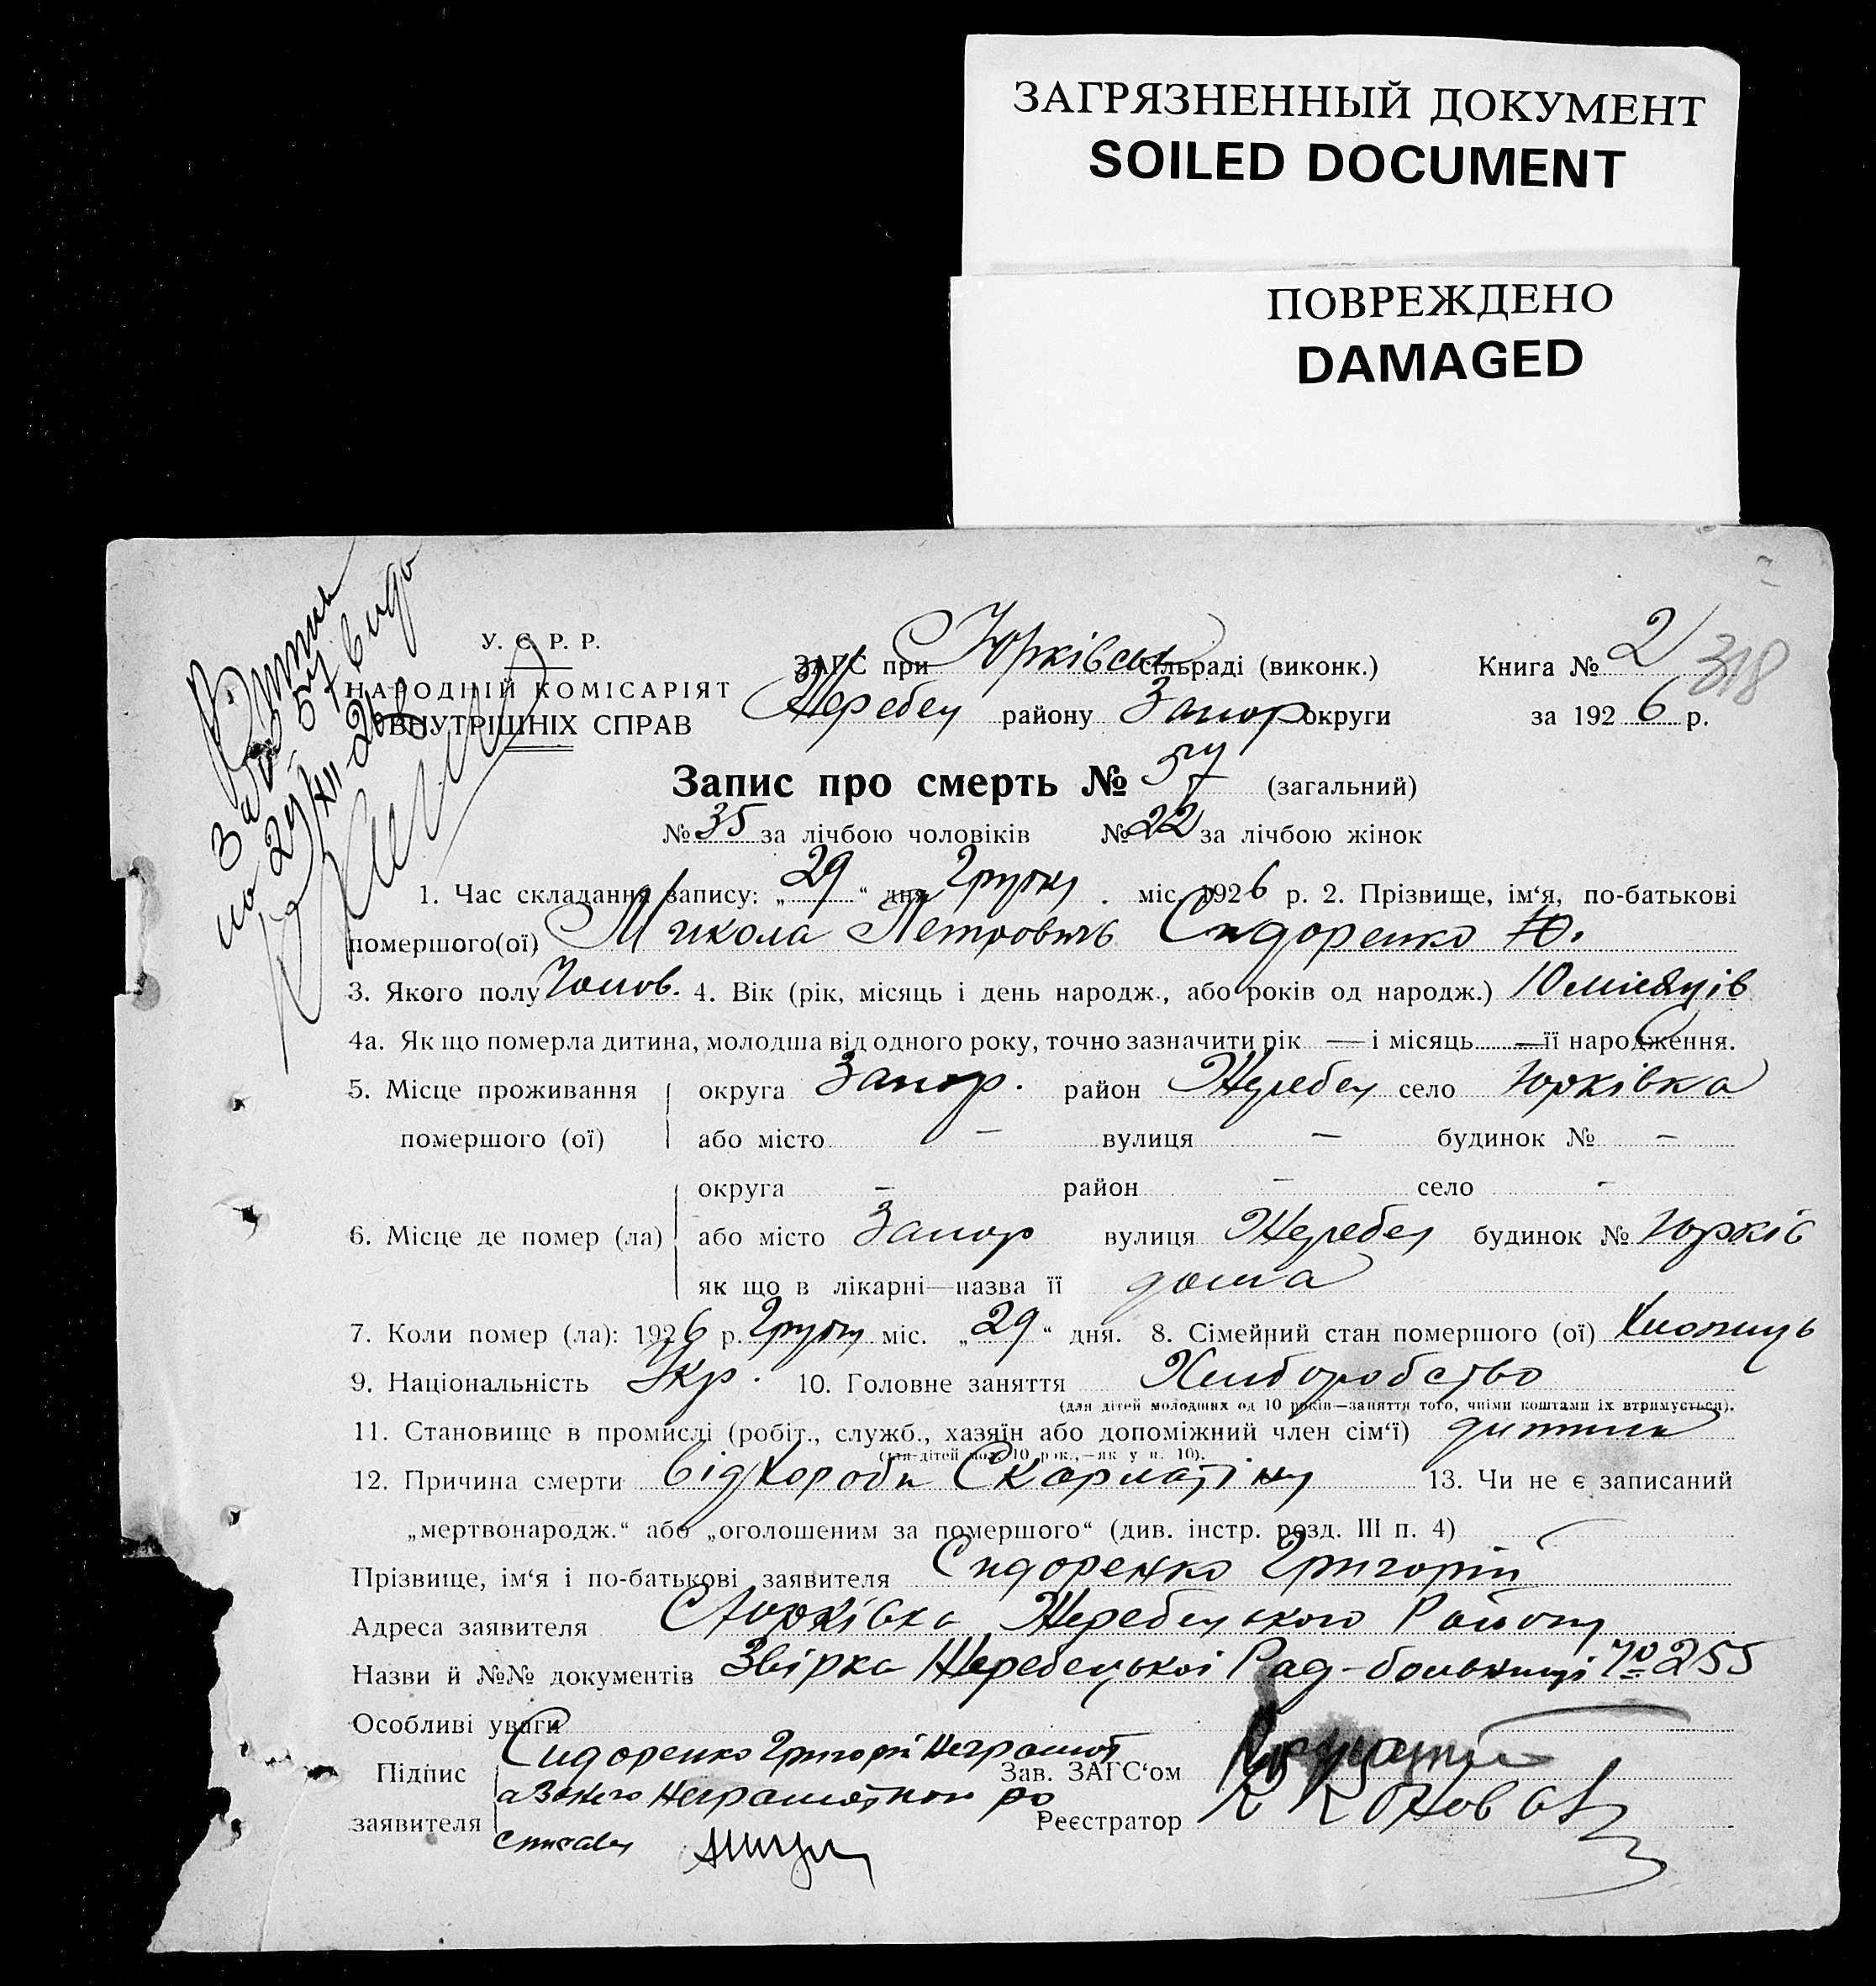 ЗАГРЯЗНЕННЫЙ ДОКУМЕНТ
SOILED DOCUMENT
ПОВРЕЖДЕНО
DAMAGED
318
Витяг
за № 57 видо
на 29/XII-26
У. С. Р. Р.
НАРОДНІЙ КОМІСАРІЯТ
ВНУТРІШНІХ СПРАВ
ЗАГС при Юрківськ сільраді (виконк.) Книга № 2
Жеребец району Запор округи за 1926 р.
Запис про смерть № 57 (загальний)
№ 35 за лічбою чоловіків № 22 за лічбою жінок
1. Час складання запису: „29“ дня Грудня міс. 1926 р. 2. Прізвище, ім‘я, по-батькові
помершого(ої) Микола Петровичь Сидоренко Ю.
3. Якого полу Чолов. 4. Вік (рік, місяць і день народж., або років од народж.) 10 місяців
4а. Як що померла дитина, молодша від одного року, точно зазначити рік — і місяць — її народження.
5. Місце проживання округа Запор. район Жеребец село Юрківка
помершого (ої) або місто – вулиця – будинок № –
округа – район – село –
6. Місце де помер (ла) або місто Запор вулиця Жеребец будинок № Юрків
як що в лікарні—назва її дома
7. Коли помер (ла): 1926 р. Грудня міс. „29“ дня. 8. Сімейний стан помершого (ої) Хлопець
9. Національність Укр. 10. Головне заняття Хліборобство
(для дітей молодших од 10 років—заняття того, чиїми коштами їх втримується).
11. Становище в промислі (робіт., служб., хазяїн або допоміжний член сім‘ї) дитина
(для дітей мол. 10 рок.,—як у п. 10).
12. Причина смерти від хороби Скарлатіни 13. Чи не є записаний
„мертвонародж.“ або „оголошеним за помершого“ (див. інстр. розд. III п. 4)
Прізвище, ім‘я і по-батькові заявителя Сидоренко Григорій
Адреса заявителя С Юрківка Жеребецького Району
Назви й №№ документів Звірка Жеребецької Рад-больниці № 255
Особливі уваги
Підпис Сидоренко Григорій Неграмот
заявителя а За него Неграмотного ро
списавсь
Зав. ЗАГС‘ом
Реєстратор К Коновал